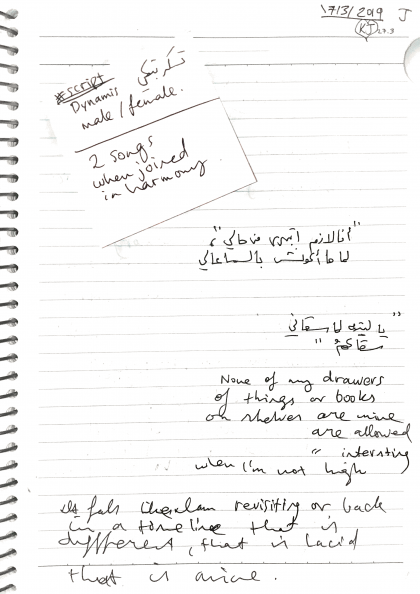 17/3/2019 J
KJ
27.3
*script
Dynamis
male / female.
2 songs
when joined
in harmony
"أنا لازم اتبرى من حالي"
لما ما أكونش بالساعالي
"يا ليته لما سقاني
سقاكم"
None of my drawers
of things or books
on shelves are mine
are allowed
" intersting
when I'm not high
It fals like I am revisiting or back
in a timeline that is
diffferent, that is lucid
that is mine.